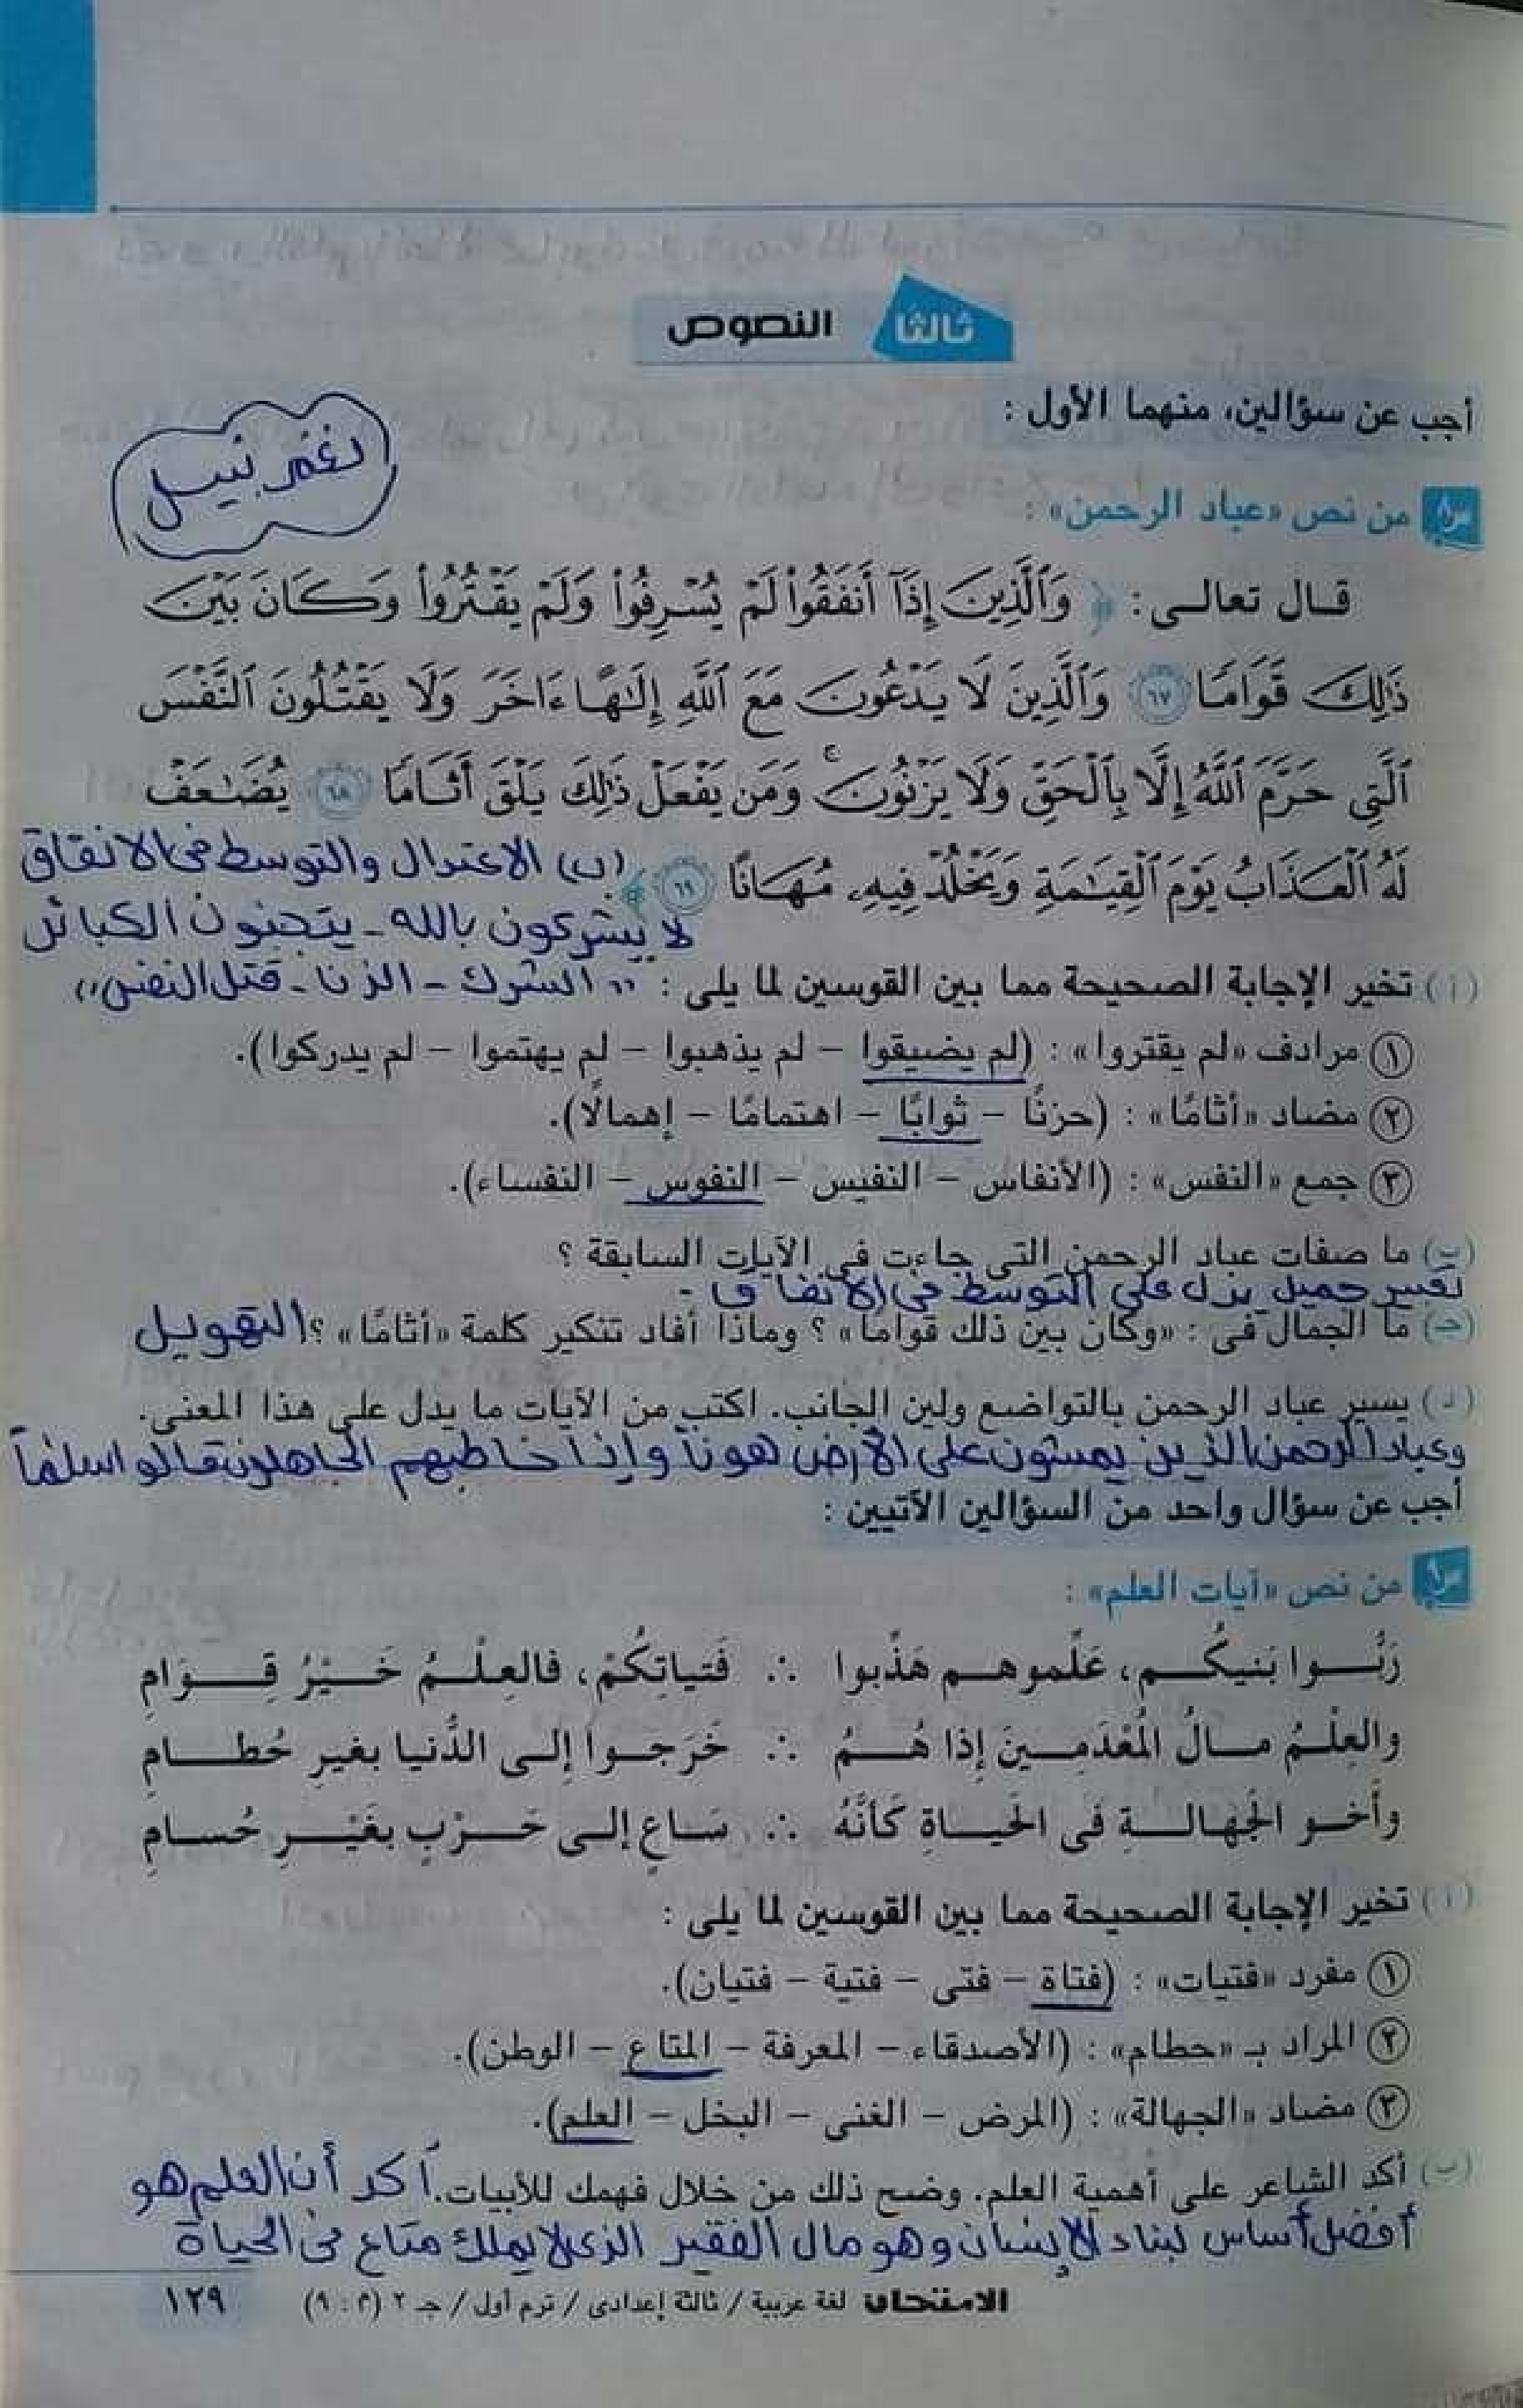 ثالثا النصوص
أجب عن سؤالين، منهما الأول :
نغم نبيل
س٨ من نص «عباد الرحمن» :
قال تعالى : ﴿ وَٱلَّذِينَ إِذَآ أَنفَقُوا۟ لَمْ يُسْرِفُوا۟ وَلَمْ يَقْتُرُوا۟ وَكَانَ بَيْنَ
ذَٰلِكَ قَوَامًا ٦٧ وَٱلَّذِينَ لَا يَدْعُونَ مَعَ ٱللَّهِ إِلَٰهًا ءَاخَرَ وَلَا يَقْتُلُونَ ٱلنَّفْسَ
ٱلَّتِى حَرَّمَ ٱللَّهُ إِلَّا بِٱلْحَقِّ وَلَا يَزْنُونَ ۚ وَمَن يَفْعَلْ ذَٰلِكَ يَلْقَ أَثَامًا ٦٨ يُضَٰعَفْ
لَهُ ٱلْعَذَابُ يَوْمَ ٱلْقِيَٰمَةِ وَيَخْلُدْ فِيهِۦ مُهَانًا ٦٩ ﴾ (ب) الاعتدال والتوسط فى الانفاق
لا يشركون بالله - يتجنبون الكبائر
(أ) تخير الإجابة الصحيحة مما بين القوسين لما يلى : "الشرك - الزنا - قتل النفس"
١ مرادف «لم يقتروا» : (لم يضيقوا – لم يذهبوا – لم يهتموا – لم يدركوا).
٢ مضاد «أثامًا» : (حزنًا – ثوابًا – اهتمامًا – إهمالًا).
٣ جمع «النفس» : (الأنفاس – النفيس – النفوس – النفساء).
(ب) ما صفات عباد الرحمن التى جاءت فى الآيات السابقة ؟
تعبير جميل يدل على التوسط فى الانفاق .
(جـ) ما الجمال فى : «وكان بين ذلك قوامًا» ؟ وماذا أفاد تنكير كلمة «أثامًا» ؟ التهويل
(د) يسير عباد الرحمن بالتواضع ولين الجانب. اكتب من الآيات ما يدل على هذا المعنى.
وعباد الرحمن الذين يمشون على الأرض هونا وإذا خاطبهم الجاهلون قالوا سلمًا
أجب عن سؤال واحد من السؤالين الآتيين :
س٩ من نص «آيات العلم» :
رَبُّوا بَنيكُم، عَلِّموهم هَذِّبوا ∴ فَتياتِكُمْ، فالعِلْمُ خَيْرُ قِوَامِ
والعِلْمُ مالُ المُعْدَمِينَ إذا هُمُ ∴ خَرَجوا إلى الدُّنيا بغيرِ حُطامِ
وأَخو الجَهالةِ فى الحَياةِ كَأنَّهُ ∴ سَاعٍ إلى حَرْبٍ بغَيْرِ حُسامِ
(أ) تخير الإجابة الصحيحة مما بين القوسين لما يلى :
١ مفرد «فتيات» : (فتاة – فتى – فتية – فتيان).
٢ المراد بـ «حطام» : (الأصدقاء – المعرفة – المتاع – الوطن).
٣ مضاد «الجهالة» : (المرض – الغنى – البخل – العلم).
(ب) أكد الشاعر على أهمية العلم. وضح ذلك من خلال فهمك للأبيات. أكد أن العلم هو
أفضل أساس لبناء الإنسان وهو مال الفقير الذى لا يملك متاع فى الحياة
الامتحان لغة عربية / ثالثة إعدادى / ترم أول / جـ ٢ (م : ٩) ١٢٩